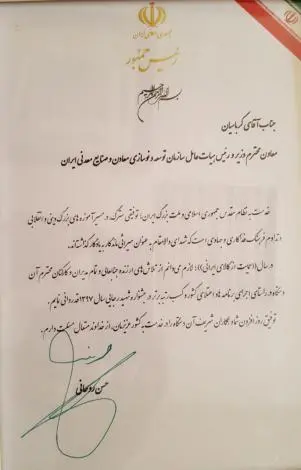 جمهوری اسلامی ایران
رئیس جمهور
بسم الله الرحمن الرحیم
جناب آقای کرباسیان
معاون محترم وزیر و رئیس هیات عامل سازمان توسعه و نوسازی معادن و صنایع معدنی ایران
خدمت به نظام مقدس جمهوری اسلامی و ملت بزرگ ایران، توفیقی مشترک در مسیر آموزه های بزرگ دینی و انقلابی
و تداوم فرهنگ فداکاری و جهادی است که شهدای والامقام به عنوان میراثی ماندگار به یادگار گذاشته‌اند.
در سال ((حمایت از کالای ایرانی))؛ لازم می‌دانم از تلاش‌های ارزنده جنابعالی و تمام مدیران و کارکنان محترم آن
دستگاه در راستای اجرای برنامه ها و اعتلای کشور و کسب رتبه برتر در جشنواره شهید رجایی سال ۱۳۹۷ قدردانی نمایم.
توفیق روزافزون شما و همکاران شریف آن دستگاه را در خدمت به کشور عزیزمان، از خداوند متعال مسئلت دارم.
حسن روحانی